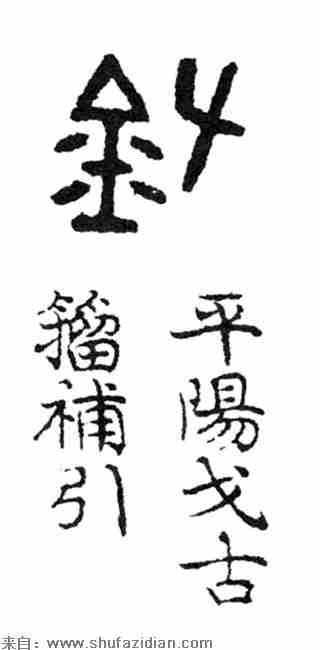 平陽戈古
籕補引
来自：www.shufazidian.com